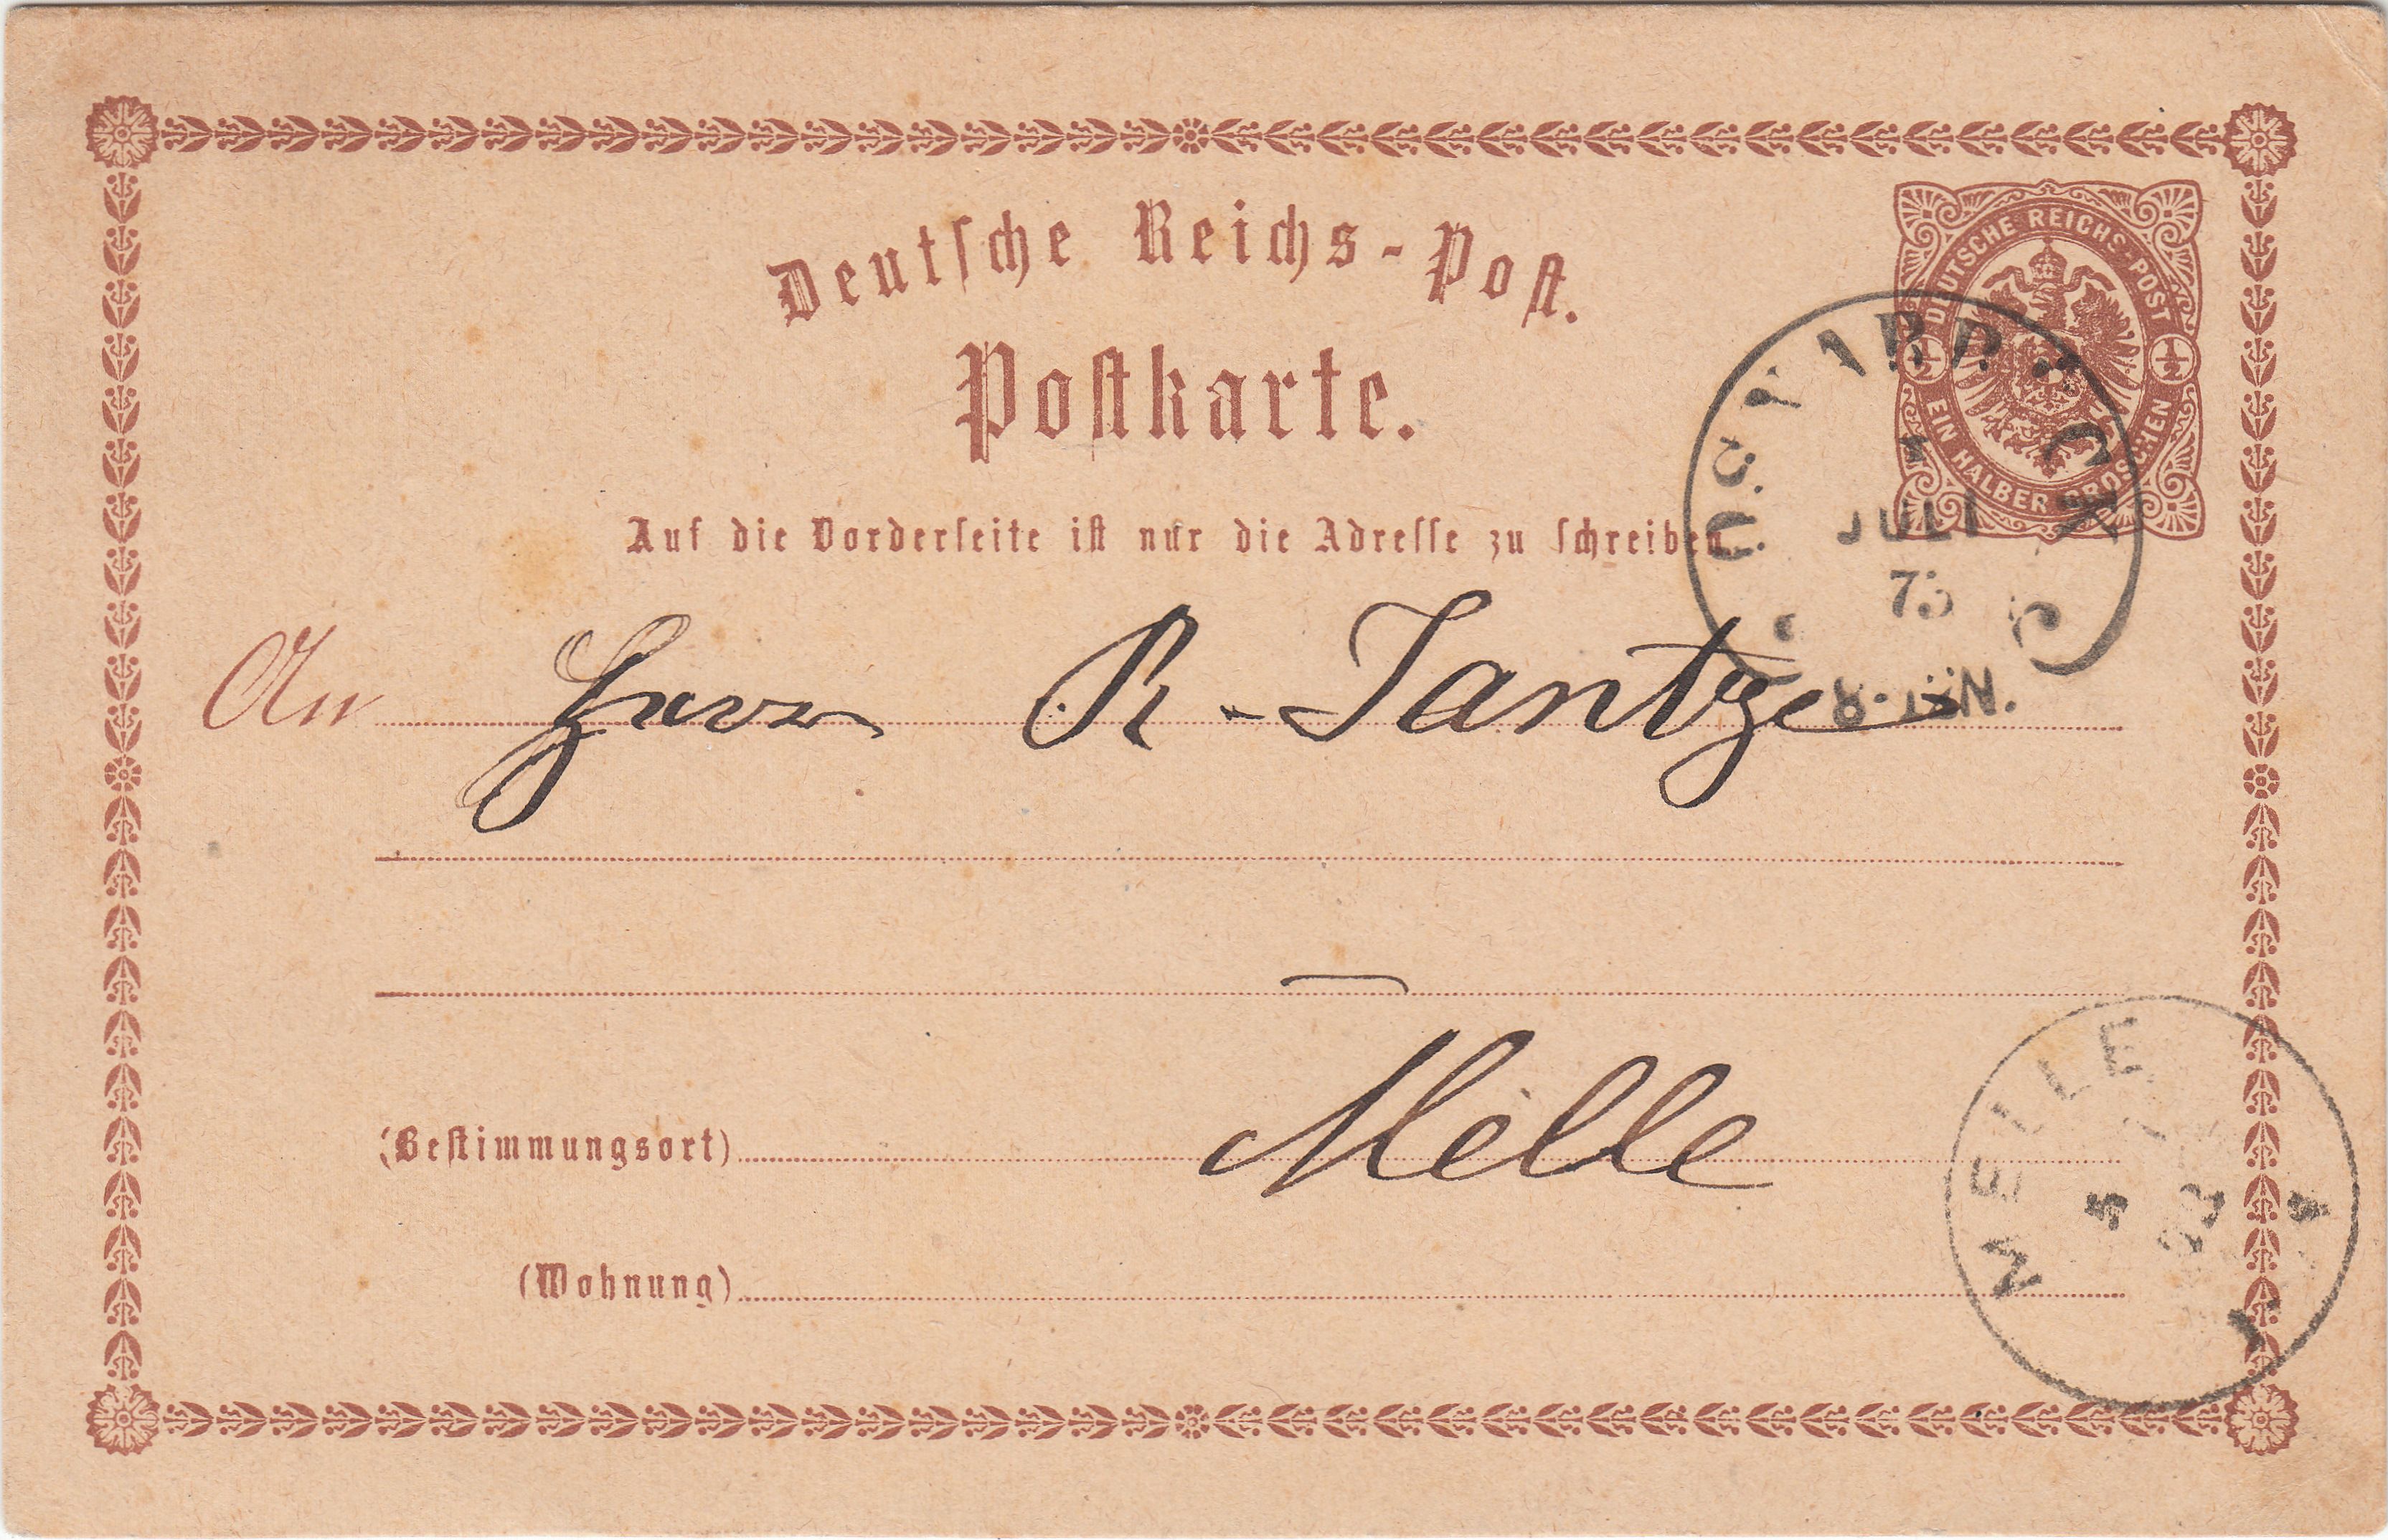 Deutsche Reichs-Post.
Postkarte.
DEUTSCHE REICHS-POST
½ ½
EIN HALBER GROSCHEN
Auf die Vorderseite ist nur die Adresse zu schreiben.
JULI
An Herrn R. Jantzen
Melle
(Bestimmungsort)
(Wohnung)
MELLE